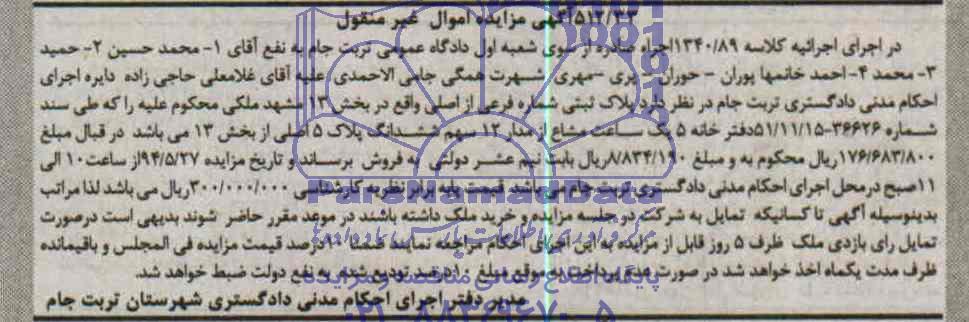 ۵۱۲/۳۳آگهی مزایده اموال غیر منقول
در اجرای اجرائیه کلاسه ۱۳۴۰/۸۹اجراء صادره از سوی شعبه اول دادگاه عمومی تربت جام به نفع آقای ۱- محمد حسین ۲- حمید
۳- محمد ۴- احمد خانمها پوران - حوران - پری -مهری شهرت همگی جامی الاحمدی علیه آقای غلامعلی حاجی زاده دایره اجرای
احکام مدنی دادگستری تربت جام در نظر دارد پلاک ثبتی شماره فرعی از اصلی واقع در بخش ۱۳ مشهد ملکی محکوم علیه را که طی سند
شماره ۳۶۶۲۶-۵۱/۱۱/۱۵دفتر خانه ۵ یک ساعت مشاع از مدار ۱۲ سهم ششدانگ پلاک ۵ اصلی از بخش ۱۳ می باشد در قبال مبلغ
۱۷۶/۶۸۳/۸۰۰ریال محکوم به و مبلغ ۸/۸۳۴/۱۹۰ریال بابت نیم عشر دولتی به فروش برساند و تاریخ مزایده ۹۴/۵/۲۷از ساعت۱۰ الی
۱۱صبح درمحل اجرای احکام مدنی دادگستری تربت جام می باشد قیمت پایه برابر نظریه کارشناسی ۳۰۰/۰۰۰/۰۰۰ریال می باشد لذا مراتب
بدینوسیله آگهی تا کسانیکه تمایل به شرکت در جلسه مزایده و خرید ملک داشته باشند در موعد مقرر حاضر شوند بدیهی است درصورت
تمایل رای بازدی ملک ظرف ۵ روز قابل از مزایده به این اجرای احکام مراجعه نمایند ضمنا ۱۰درصد قیمت مزایده فی المجلس و باقیمانده
ظرف مدت یکماه اخذ خواهد شد در صورت عدم پرداخت به موقع مبلغ ۱۰درصد تودیع شده به نفع دولت ضبط خواهد شد.
مدیر دفتر اجرای احکام مدنی دادگستری شهرستان تربت جام
ParsNamadData
پایگاه اطلاع رسانی مناقصه و مزایده
۰۲۱-۸۸۳۴۹۶۷۰-۵